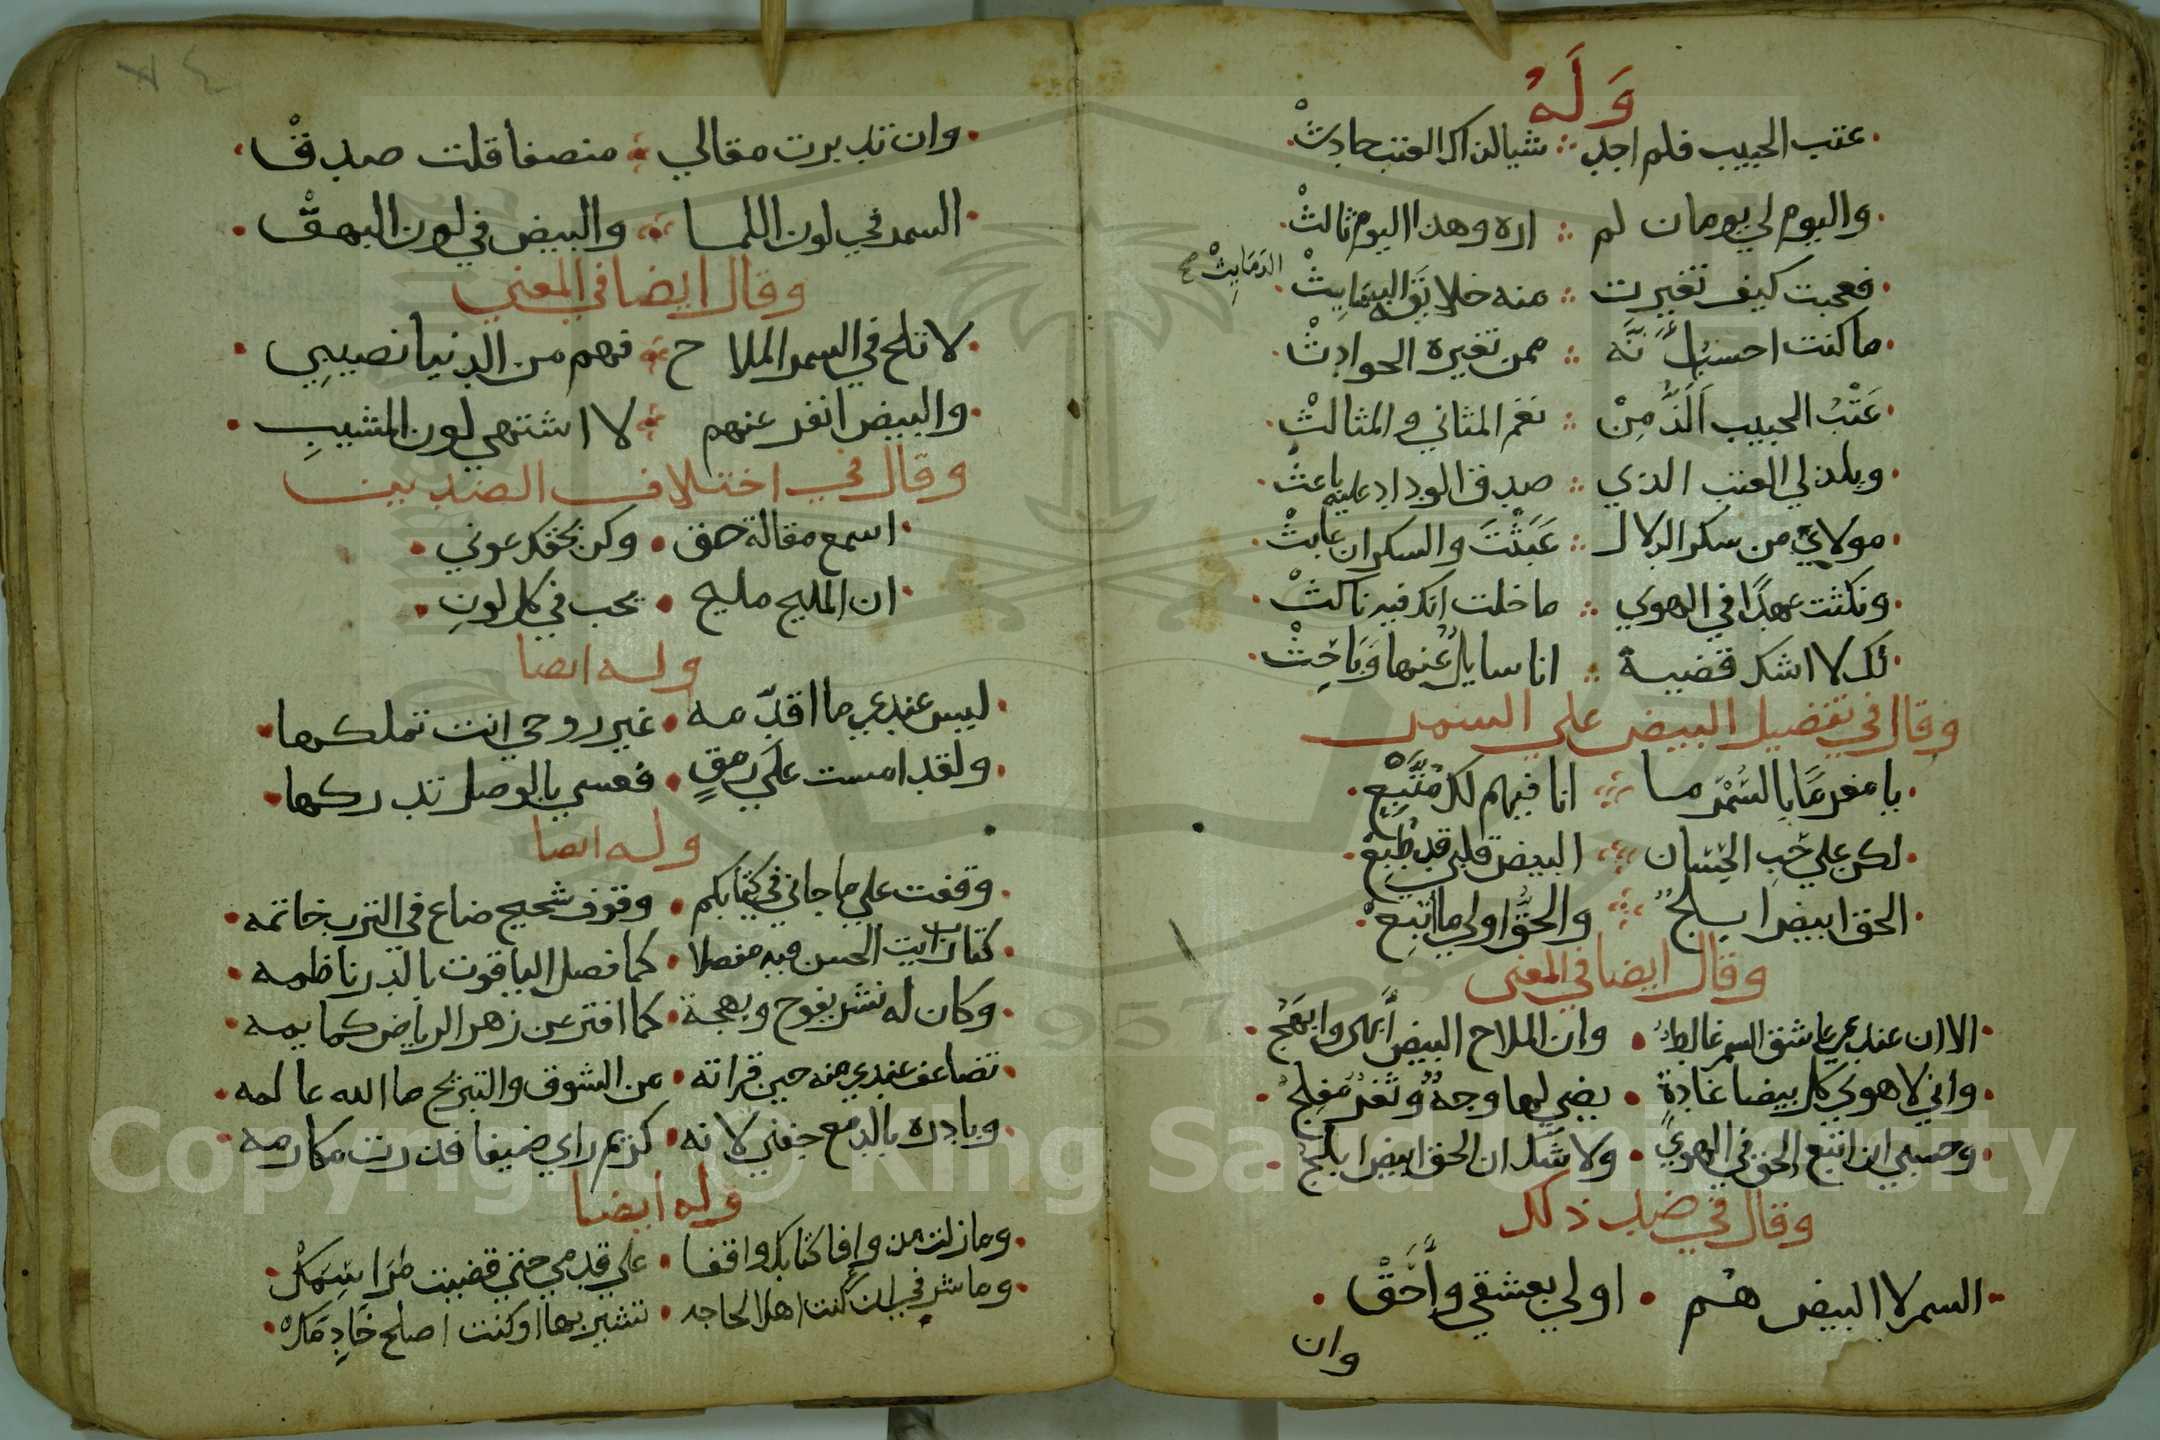 وَلَهُ
عتب الحبيب فلم اجد ؞ شيا لذاك العتب حادثْ
واليوم لي يومان لم ؞ اره وهذا اليوم ثالثْ
فعجبت كيف تغيرت ؞ منه خلايقه البهايثْ
الدمايث صح
ما كنت احسب أنَّه ؞ ممن تغيره الحوادثْ
عَتْبُ الحبيب اَلَذُّ مِنْ ؞ نغم المثاني والمثالثْ
ويلذ لي العتب الذي ؞ صدق الوداد عليه باعثْ
مولاي من سكر الدلال ؞ عَبَثْتَ والسكران عابثْ
ونكثت عهدًا في الهوي ؞ ما خلت انك فيه ناكثْ
لك لا اشك قضية ؞ انا سايلٌ عنها وَبَاحِثْ
وقال في تفضيل البيض علي السمر
يا مغرمًا بالسُّمْر ما ؞ انا فيهم لك مُتَّبِعْ
لكن علي حُبِ الحِسان ؞ البيض قلبي قد طُبِعْ
الحق ابيض ابلجٌ ؞ والحقُّ اولي ما اتُّبِعْ
وقال ايضا في المعنى
الا ان عندي عاشق السمر غالطٌ • وان الملاح البيض أَبهى وابهَجُ
واني لاهوي كل بيضا غادةٍ • يضي لها وجهٌ وثغرٌ مفلجُ
وحسبي ان اتبع الحق في الهوي • ولا شك ان الحق ابيض ابلجُ
وقال في ضد ذلك
السمر لا البيض هم • اولي بعشقي وأَحَقْ
وان
٧٤
وان تدبرت مقالي ؞ منصفا قلت صدقْ
السمر في لون اللما ؞ والبيض في لون البهقْ
وقال ايضا في المعني
لا تلح في السمر الملا ح ؞ فهم من الدنيا نصيبي
والبيض انفر عنهم ؞ لا اشتهي لون المشيبِ
وقال في اختلاف الضدين
اسمع مقالة حق • وكن بحقك عوني
ان المليح مليح • يحب في كل لونِ
وله ايضا
ليس عندي ما اقدّمه • غير روحي انت تملكها
ولقد امست علَي رمقٍ • فعسي بالوصل تدركها
وله ايضا
وقفت علي ما جاني في كتابكم • وقوف شحيح ضاع في الترب خاتمه
كتاب رايت الحسن فيه مفصلا • كما فصل الياقوت بالدر ناظمه
وكان له نشر يفوح وبهجة • كما افتر عن زهر الرياض كمايمه
تضاعف عندي منه حين قراته • من الشوق والتبريح ما الله عالمه
وبادره بالدمع جفني لانه • كريم راي ضيفا فدرت مكارمه
وله ايضا
وما زلت من وافا كتابك واقفا • علي قدمي حتي قضيت مَراسِمَكْ
وما شرفي ان كنت اهلا لحاجه • تشير بها او كنت اصلح خَادِمَكْ